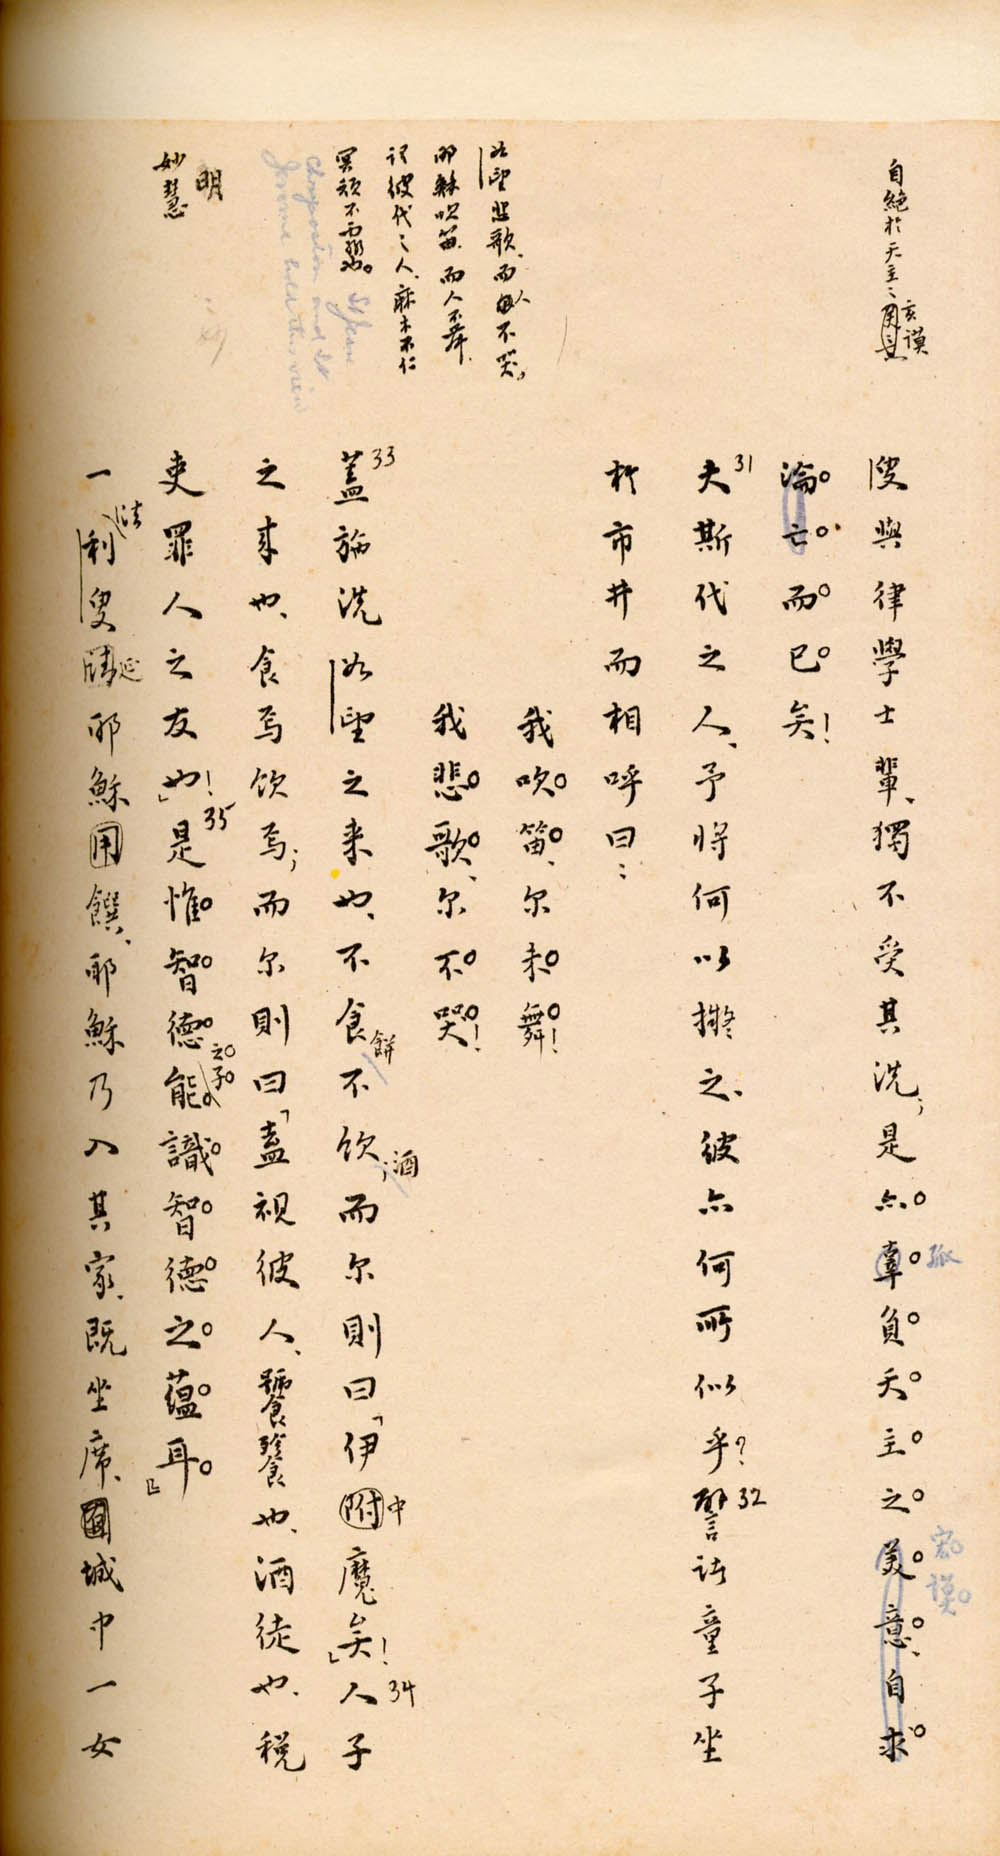 自絕於天主之
宏謨
如望悲歌、而人不哭；
耶穌吹笛、而人不舞、
謂彼代之人、麻木不仁
冥頑不靈也。
St Jean
Chrysostom and St
Jerome held this view
明
妙慧
叟與律學士輩、獨不受其洗；是亦辜負天主之美意、自求
孤
宏謨
淪亡而已矣！
31 夫斯代之人、予將何以擬之、彼亦何所似乎？32 譬諸童子坐
於市井而相呼曰：
我吹笛、尔未舞！
我悲歌、尔不哭！
33 蓋施洗如望之来也、不食餅不飲酒；而尔則曰「伊附中魔矣！」34 人子
之来也、食焉飲焉；而尔則曰「盍視彼人、饕餮也、酒徒也、税
吏罪人之友也！」35 是惟智德之子能識智德之蘊耳。』
一法利叟請延耶穌用饌、耶穌乃入其家、既坐席、城中一女